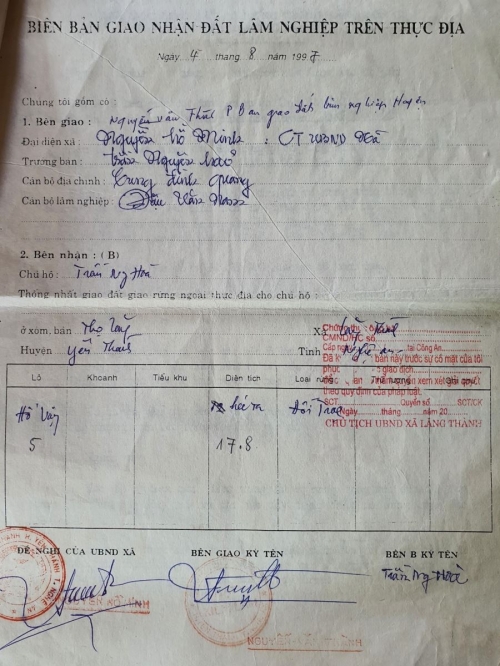 BIÊN BẢN GIAO NHẬN ĐẤT LÂM NGHIỆP TRÊN THỰC ĐỊA
Ngày 4 tháng 8 năm 1997
Chúng tôi gồm có :
1. Bên giao : Nguyễn Văn Thất P Ban giao đất lâm nghiệp Huyện
Đại diện xã : Nguyễn Hồ Minh : CT UBND xã
Trưởng ban : Trần Nguyễn
Cán bộ địa chính : Cung Đình Quang
Cán bộ lâm nghiệp : Văn
2. Bên nhận : (B)
Chủ hộ : Trần Ng Hoà
Thống nhất giao đất giao rừng ngoài thực địa cho chủ hộ :
ở xóm, bản Thọ Xã Lăng Thành
Huyện Yên Thành Tỉnh Nghệ An
Chứng thực
CMND/HC số
Cấp ngày tại Công An
Đã ký bản này trước sự có mặt của tôi
giao dịch
theo quy định của pháp luật.
SCT Quyển số SCT/CK
Ngày tháng năm 20
CHỦ TỊCH UBND XÃ LĂNG THÀNH
Lô Khoanh Tiểu khu Diện tích Loại rừng Ghi chú
Hố Đồi Trọc
5 17.8
ĐỀ NGHỊ CỦA UBND XÃ BÊN GIAO KÝ TÊN BÊN B KÝ TÊN
Trần Ng Hoà